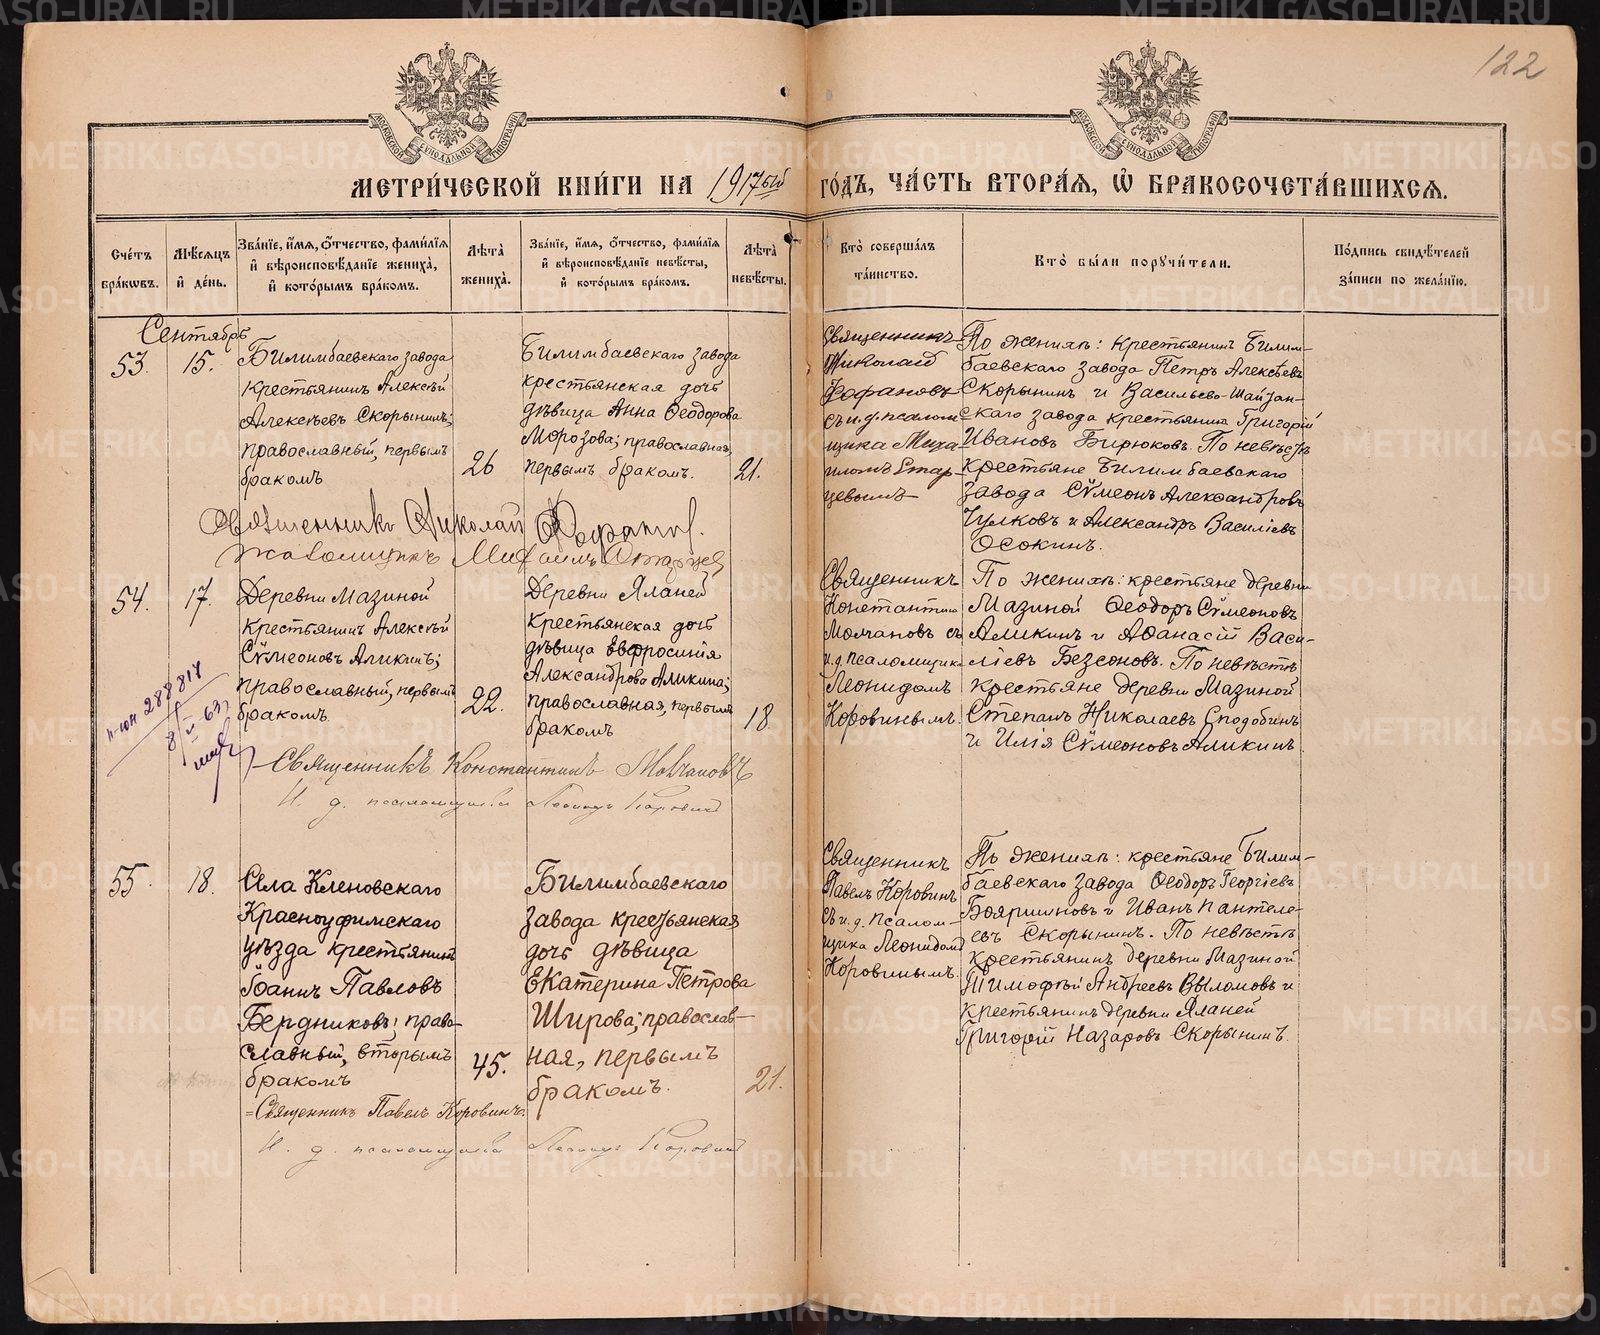 122
МОСКОВСКОЙ СѴНОДАЛЬНОЙ ТИПОГРАФІИ
МОСКОВСКОЙ СѴНОДАЛЬНОЙ ТИПОГРАФІИ
МЕТРИ́ЧЕСКОЙ КНИ́ГИ НА 1917ый ГО́ДЪ, ЧА́СТЬ ВТОРА́Ѧ, Ѽ БРАКОСОЧЕТА́ВШИХСѦ.
Сче́тъ бра́кѡвъ.
Мѣ́сѧцъ и҆ де́нь.
Зва́нїе, и҆́мѧ, ѻ҆́тчество, фами́лїѧ и҆ вѣроисповѣ́данїе жениха̀, и҆ кото́рымъ бра́комъ.
Лѣ́та жениха̀.
Зва́нїе, и҆́мѧ, ѻ҆́тчество, фами́лїѧ и҆ вѣроисповѣ́данїе невѣ́сты, и҆ кото́рымъ бра́комъ.
Лѣ́та невѣ́сты.
Кто̀ соверша́лъ та́инство.
Кто̀ бы́ли порꙋчи́тели.
По́дпись свидѣ́телей за́писи по жела́нїю.
Сентябрь
53.
15.
Билимбаевскаго завода
крестьянинъ Алексѣй
Алексѣевъ Скорынинъ;
православный, первымъ
бракомъ
26
Билимбаевскаго завода
крестьянская дочь
дѣвица Анна Ѳеодорова
Морозова; православная,
первымъ бракомъ.
21.
Священникъ
Николай
Фофановъ
съ и. д. псалом-
щика Миха-
иломъ Стар-
цевымъ
По женихѣ: крестьянинъ Билим-
баевскаго завода Петръ Алексѣевъ
Скорынинъ и Васильево-Шайтан-
скаго завода крестьянинъ Григорій
Ивановъ Бирюковъ. По невѣстѣ
крестьяне Билимбаевскаго
завода Сѵмеонъ Александровъ
Чулковъ и Александръ Василіевъ
Осокинъ.
Священникъ Николай Фофановъ.
Псаломщикъ Михаилъ Старцев
54.
17.
Деревни Мазиной
крестьянинъ Алексѣй
Сѵмеоновъ Аликинъ;
православный, первымъ
бракомъ.
22.
Деревни Яланей
крестьянская дочь
дѣвица Евфросинія
Александрова Аликина;
православная, первымъ
бракомъ
18
Священникъ
Константинъ
Молчановъ съ
и. д. псаломщика
Леонидомъ
Коровинымъ.
По женихѣ: крестьяне деревни
Мазиной Ѳеодоръ Сѵмеоновъ
Аликинъ и Аѳанасій Васи-
ліевъ Безсоновъ. По невѣстѣ
крестьяне деревни Мазиной
Степанъ Николаевъ Сподобинъ
и Илія Сѵмеоновъ Аликинъ.
288817
8/II 63
Священникъ Константинъ Молчановъ
И. д. псаломщика Леонидъ Коровинъ
55.
18.
Села Кленовскаго
Красноуфимскаго
уѣзда крестьянинъ
Іоаннъ Павловъ
Бердниковъ; право-
славный, вторымъ
бракомъ
45.
Билимбаевскаго
завода крестьянская
дочь дѣвица
Екатерина Петрова
Широва; православ-
ная, первымъ
бракомъ.
21.
Священникъ
Павелъ Коровинъ
съ и. д. псалом-
щика Леонидомъ
Коровинымъ.
По женихѣ: крестьяне Билим-
баевскаго завода Ѳеодоръ Георгіевъ
Бояршиновъ и Иванъ Пантеле-
евъ Скорынинъ. По невѣстѣ
крестьянинъ деревни Мазиной
Тимоѳей Андреевъ Выломовъ и
крестьянинъ деревни Яланей
Григорій Назаровъ Скорынинъ.
Священникъ Павелъ Коровинъ.
И. д. псаломщика Леонидъ Коровинъ
METRIKI.GASO-URAL.RU